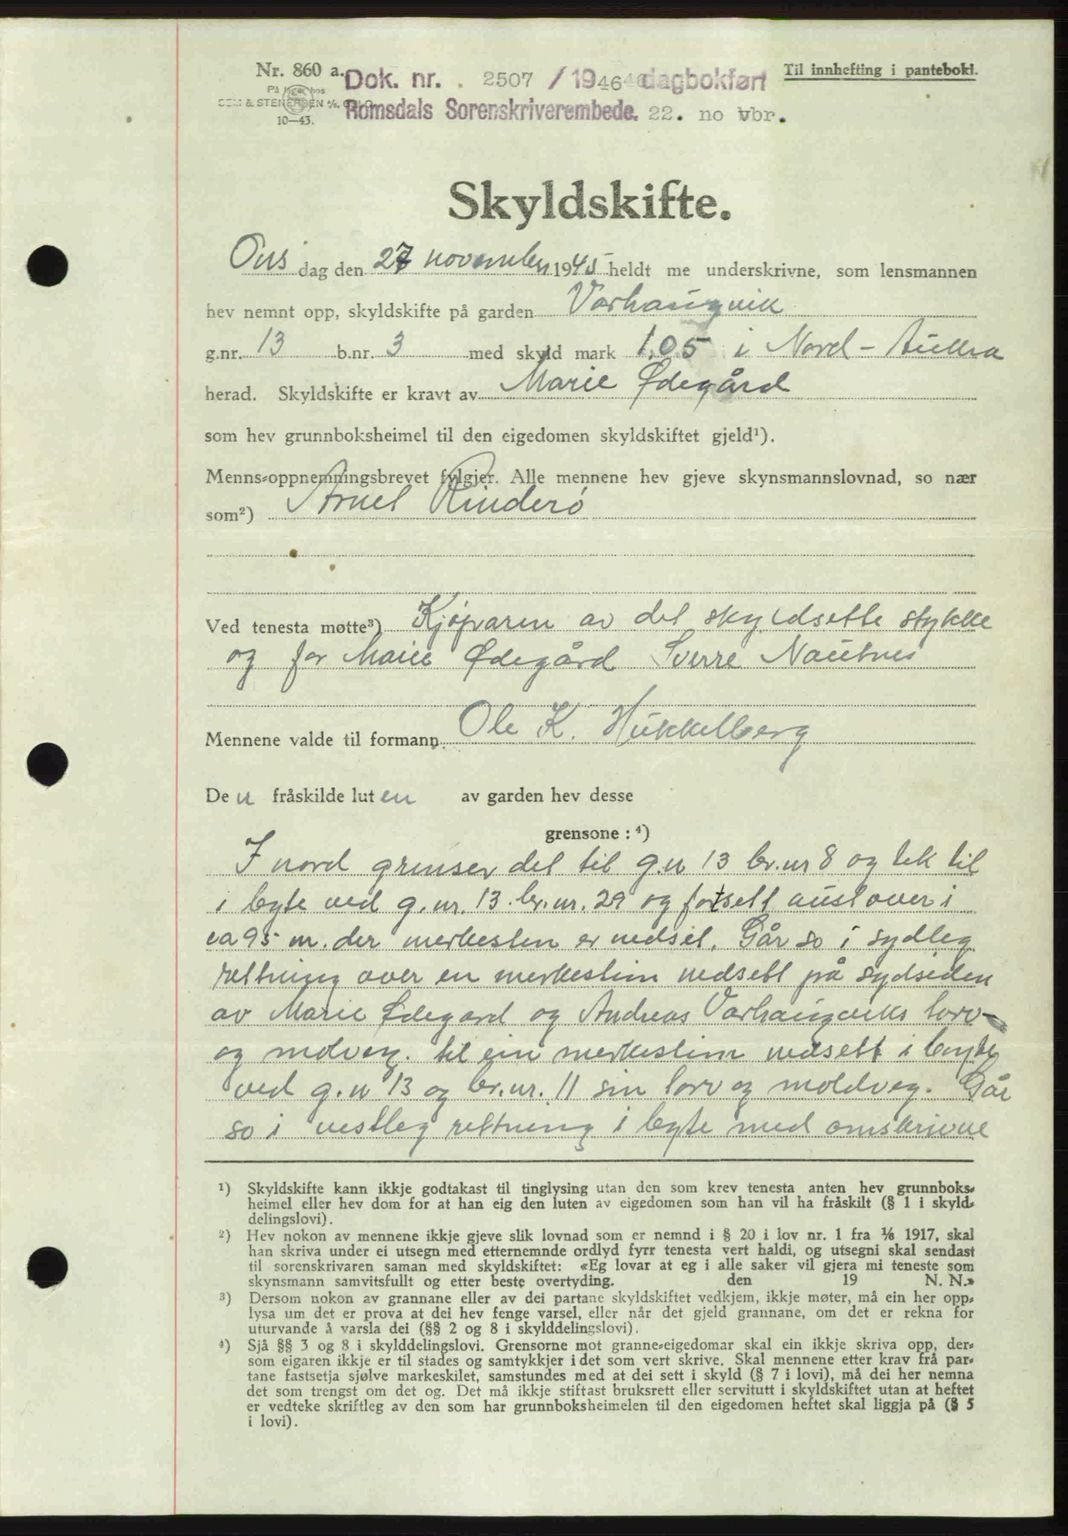 Nr. 860 a.
Til innhefting i pantebokl.
Dok. nr. 2507 / 1946 dagbokført
På hos
SEM & STENERSEN A/S, OSLO
Romsdals Sorenskriverembede. 22. no vbr.
10—43.
Skyldskifte.
Ons dag den 27 november 1945 heldt me underskrivne, som lensmannen
hev nemnt opp, skyldskifte på garden Varhaugvik
g.nr. 13 b.nr. 3 med skyld mark 1.05 i Nord-Aukra
herad. Skyldskifte er kravt av Marie Ødegård
som hev grunnboksheimel til den eigedomen skyldskiftet gjeld¹).
Menns-oppnemningsbrevet fylgjer. Alle mennene hev gjeve skynsmannslovnad, so nær
som²) Arnet Rinderö
Ved tenesta møtte³) Kjøparen av det skyldsette stykke
og for Marie Ødegård Sverre Nautnes
Mennene valde til formann Ole K. Hukkelberg
De n fråskilde lut en av garden hev desse
grensone : ⁴)
I nord grenser det til g.n 13 br.nr 8 og tek til
i byte ved g.nr. 13. br.nr. 29 og fortsett austover i
ca 95 m. der merkesten er nedset. Går so i sydleg
rettning over en merkestein nedsett på sydsiden
av Marie Ødegard og Andreas Varhaugviks torv-
og moldveg. til ein merkestein nedsett i byte
ved g.n 13 og br.nr. 11 sin torv og moldveg. Går
so i vestleg rettning i byte med omskrivne
¹) Skyldskifte kann ikkje godtakast til tinglysing utan den som krev tenesta anten hev grunnboks-
heimel eller hev dom for at han eig den luten av eigedomen som han vil ha fråskilt (§ 1 i skyld-
delingslovi).
²) Hev nokon av mennene ikkje gjeve slik lovnad som er nemnd i § 20 i lov nr. 1 fra 1/6 1917, skal
han skriva under ei utsegn med etternemnde ordlyd fyrr tenesta vert haldi, og utsegni skal sendast
til sorenskrivaren saman med skyldskiftet: «Eg lovar at eg i alle saker vil gjera mi teneste som
skynsmann samvitsfullt og etter beste overtyding. den 19 N. N.»
³) Dersom nokon av grannane eller av dei partane skyldskiftet vedkjem, ikkje møter, må ein her opp-
lysa um det er prova at dei hev fenge varsel, eller når det gjeld grannane, om det er rekna for
uturvande å varsla dei (§§ 2 og 8 i skylddelingslovi).
⁴) Sjå §§ 3 og 8 i skylddelingslovi. Grensorne mot granne-eigedomar skal ein ikkje skriva opp, der-
som eigaren ikkje er til stades og samtykkjer i det som vert skrive. Skal mennene etter krav frå par-
tane fastsetja sjølve markeskilet, samstundes med at dei sett i skyld (§ 7 i lovi), må dei her nemna
det som trengst om det og. Det må ikkje stiftast bruksrett eller servitutt i skyldskiftet utan at heftet
er vedteke skriftleg av den som har grunnboksheimelen til den eigedomen heftet skal liggja på (§ 5
i lovi).